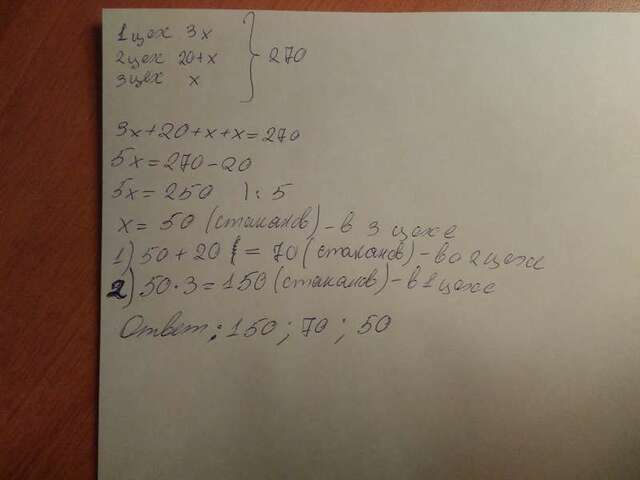 1 цех 3x
2 цех 20+x } 270
3 цех x
3x+20+x+x=270
5x=270-20
5x=250 |:5
x=50 (стаканов) - в 3 цехе
1) 50+20=70 (стаканов) - во 2 цехе
2) 50·3=150 (стаканов) - в 1 цехе
Ответ: 150; 70; 50